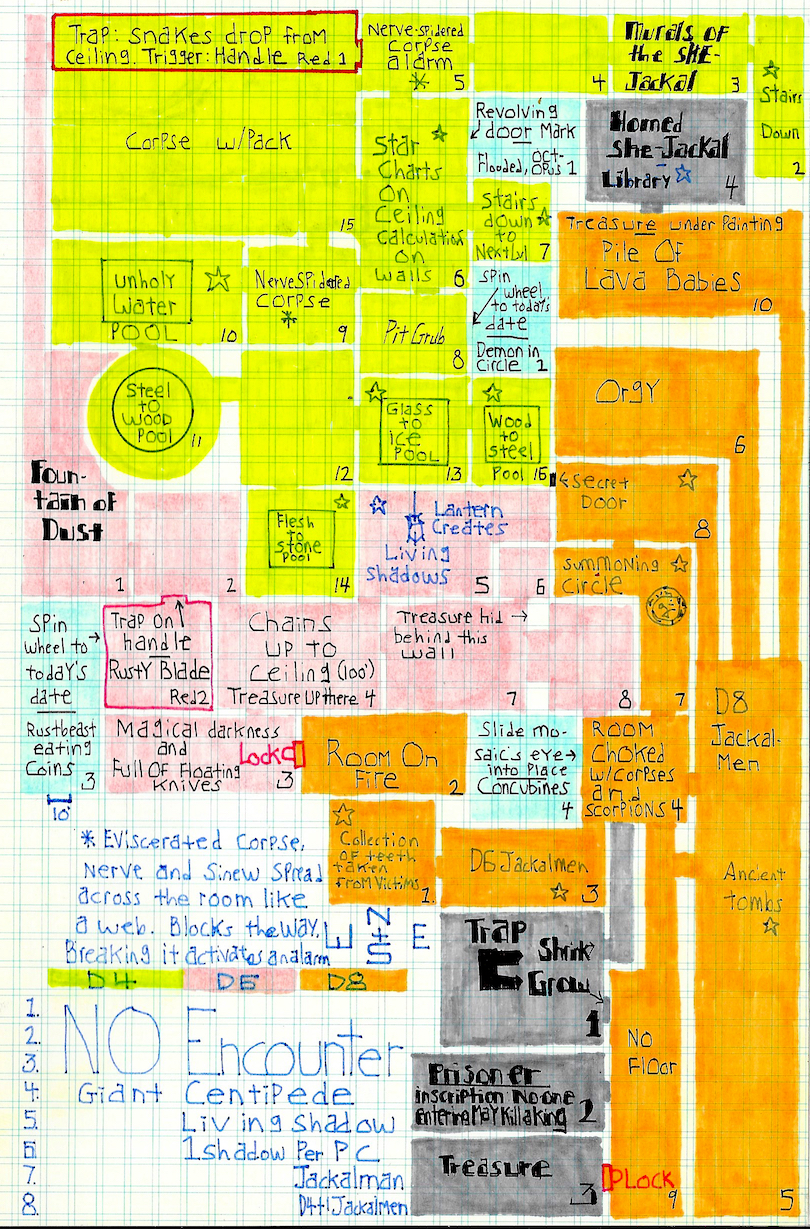 Trap: Snakes drop from
Ceiling. Trigger: Handle Red 1
Nerve-spidered
Corpse
alarm
*
5
4
Murals of
the SHE-
Jackal
3
Stairs
Down
2
Corpse w/Pack
15
Star
Charts
On
Ceiling
Calculation
on
walls
6
Revolving
door Mark
Flooded, OCT-
OPUS 1
Horned
She-Jackal
Library
4
Stairs
down
to
Nextlvl 7
Treasure under Painting
Pile Of
Lava Babies
10
unholy
Water
POOL
10
NerveSpidered
Corpse
*
9
Pit Grub
8
SPin
wheel
to today's
date
Demon in
Circle 2
Steel
to
Wood
Pool
11
12
Glass
to
ice
POOL
13
Wood
to
steel
Pool 16
Orgy
6
Foun-
tain of
Dust
1
2
Flesh
to
stone
POOL
14
Lantern
Creates
Living
Shadows
5
6
Secret
Door
8
Summoning
Circle
7
SPin
wheel to
today's
date
Rustbeast
eating
Coins 3
Trap On
handle
Rusty Blade
Red2
Chains
UP to
Ceiling (100')
Treasure UP there 4
Treasure hid →
behind this
wall
7
8
D8
Jackal-
Men
Magical darkness
and
Full Of Floating
Knives
3
Lockd
Room On
Fire
2
Slide mo-
saic's eye→
into Place
Concubines
4
ROOM
Choked
w/Corpses
and
Scorpions 4
10'
* Eviscerated Corpse,
Nerve and Sinew Spread
across the room like
a web. Blocks the way.
Breaking it activates an alarm
Collection
OF teeth
taken
From Victims
1
D6 Jackalmen
3
Ancient
tombs
N
S
E
D4 D6 D8
Trap
Shrink
Grow
1
1. NO Encounter
2.
3.
4. Giant Centipede
5. Living Shadow
6. 1 shadow Per PC
7. Jackalman
8. D4+1 Jackalmen
Prisoner
inscription No one
entering May Kill a King
2
Treasure
3
No
Floor
LOCK
9
5